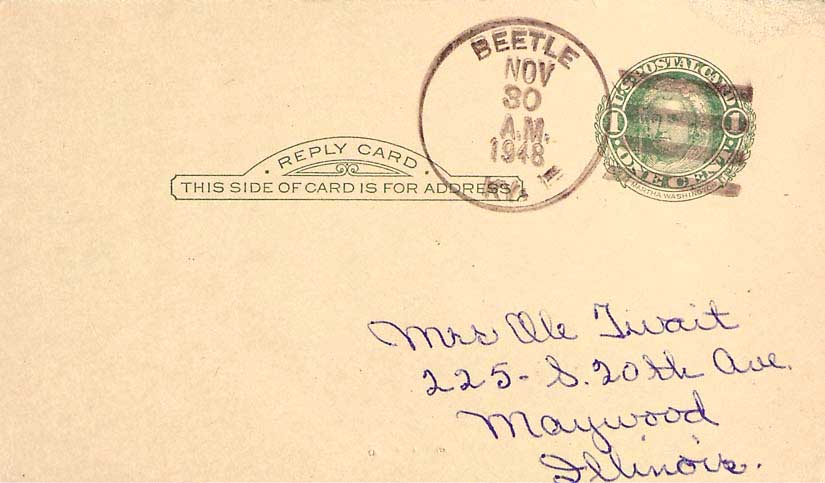 BEETLE
NOV
30
A.M.
1948
KY.
U.S. POSTAL CARD
1 1
ONE CENT
MARTHA WASHINGTON
· REPLY CARD ·
THIS SIDE OF CARD IS FOR ADDRESS
Mrs Ole Tivait
225- S. 20th Ave.
Maywood
Illinois.